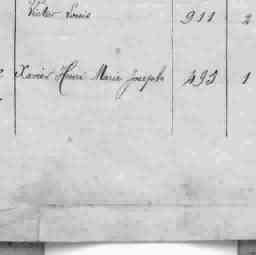 Victor Louis 911 2
Xavier Henri Marie Joseph 493 1